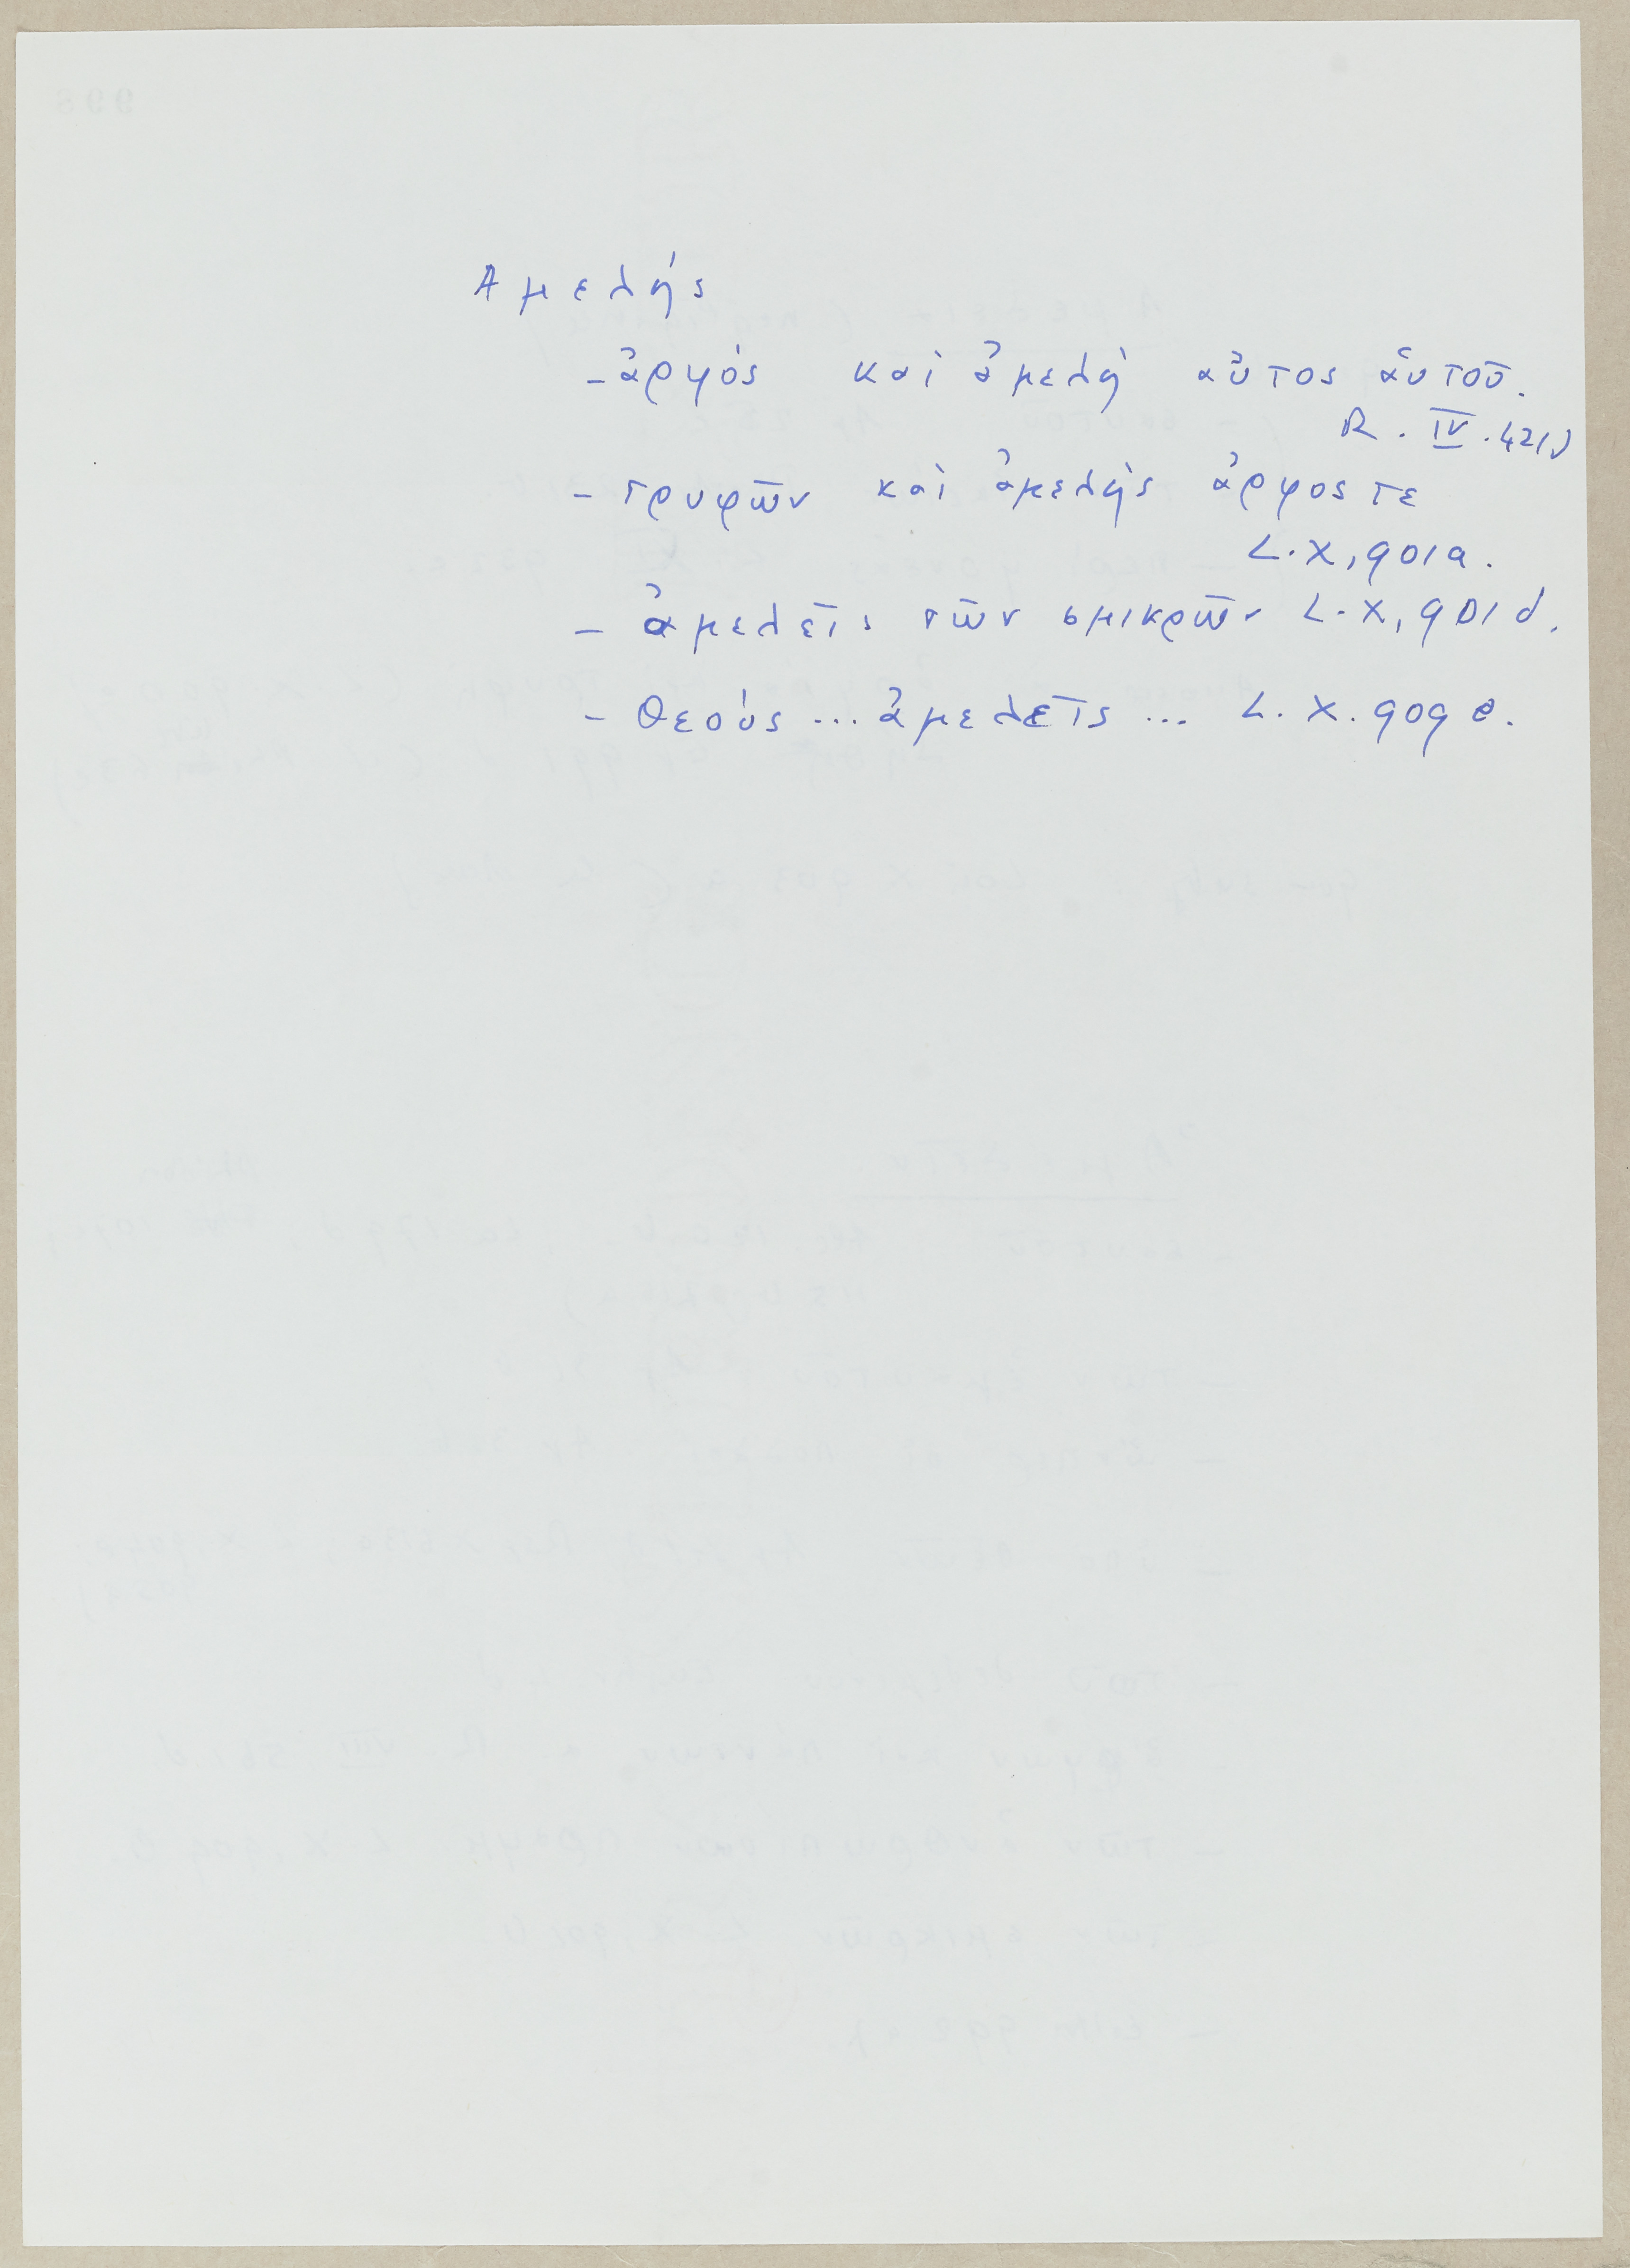 Αμελής
- ἀργὸς καὶ ἀμελὴ αὐτος αὑτοῦ.
R. IV. 421d
- τρυφῶν καὶ ἀμελὴς ἀργος τε
L. X, 901a.
- ἀμελεῖς τῶν σμικρῶν L. X, 901d.
- θεοὺς ... ἀμελεῖς ... L. X. 909e.